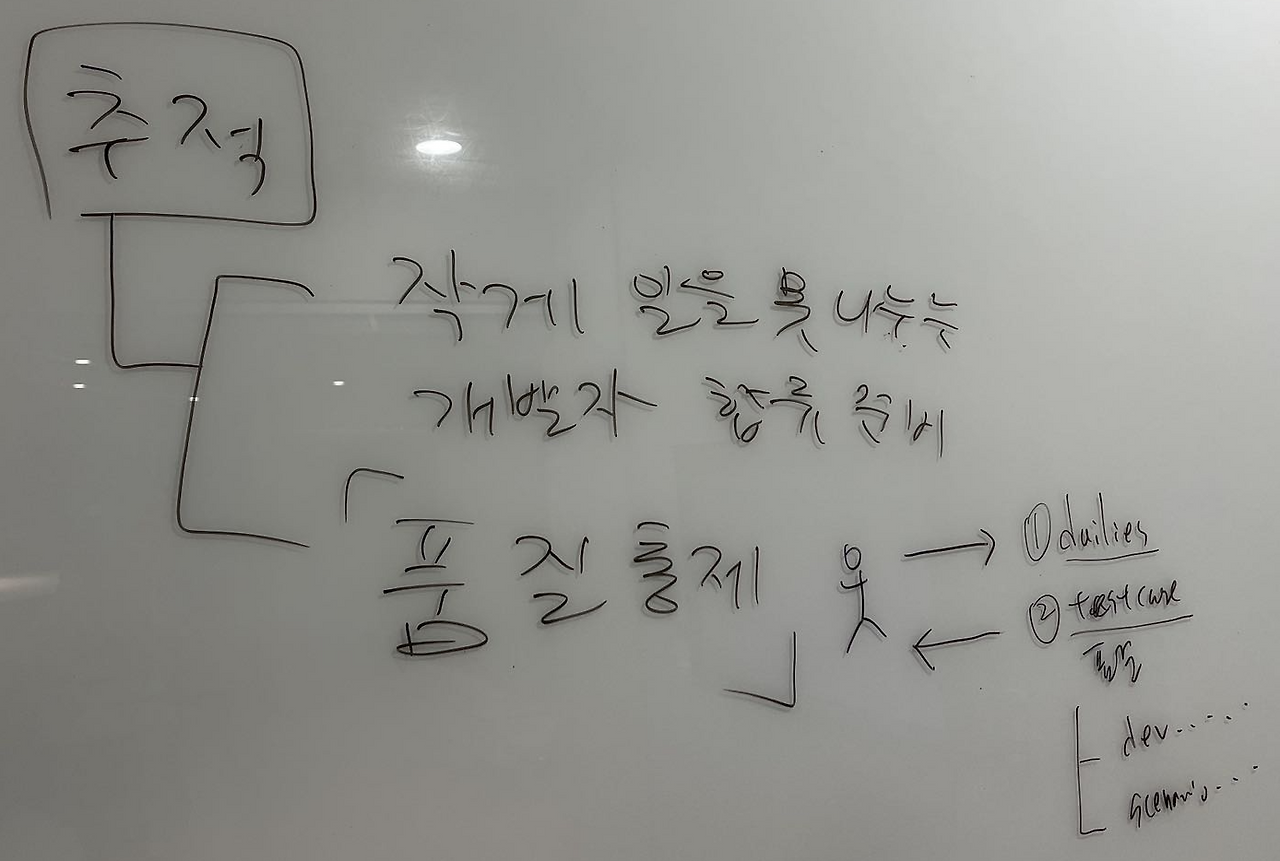 추적
작게 일을 못 나누는
개발자 합류 준비
「품질통제」
① dailies
② testcase
dev......
scenario....